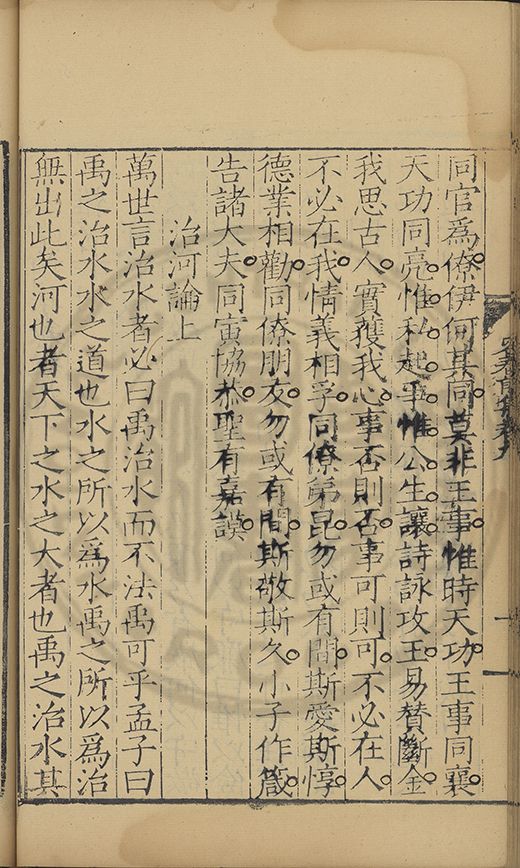 同官爲僚伊何其同莫非王事惟時天功王事同襄
天功同亮惟私起爭惟公生讓詩詠攻玉易賛斷金
我思古人實獲我心事否則否事可則可不必在人
不必在我情義相孚同僚弟昆勿或有間斯愛斯惇
德業相勸同僚朋友勿或有間斯敬斯久小子作箴
告諸大夫同寅協恭聖有嘉謨
治河論上
萬世言治水者必曰禹治水而不法禹可乎孟子曰
禹之治水水之道也水之所以爲水禹之所以爲治
無出此矣河也者天下之水之大者也禹之治水其